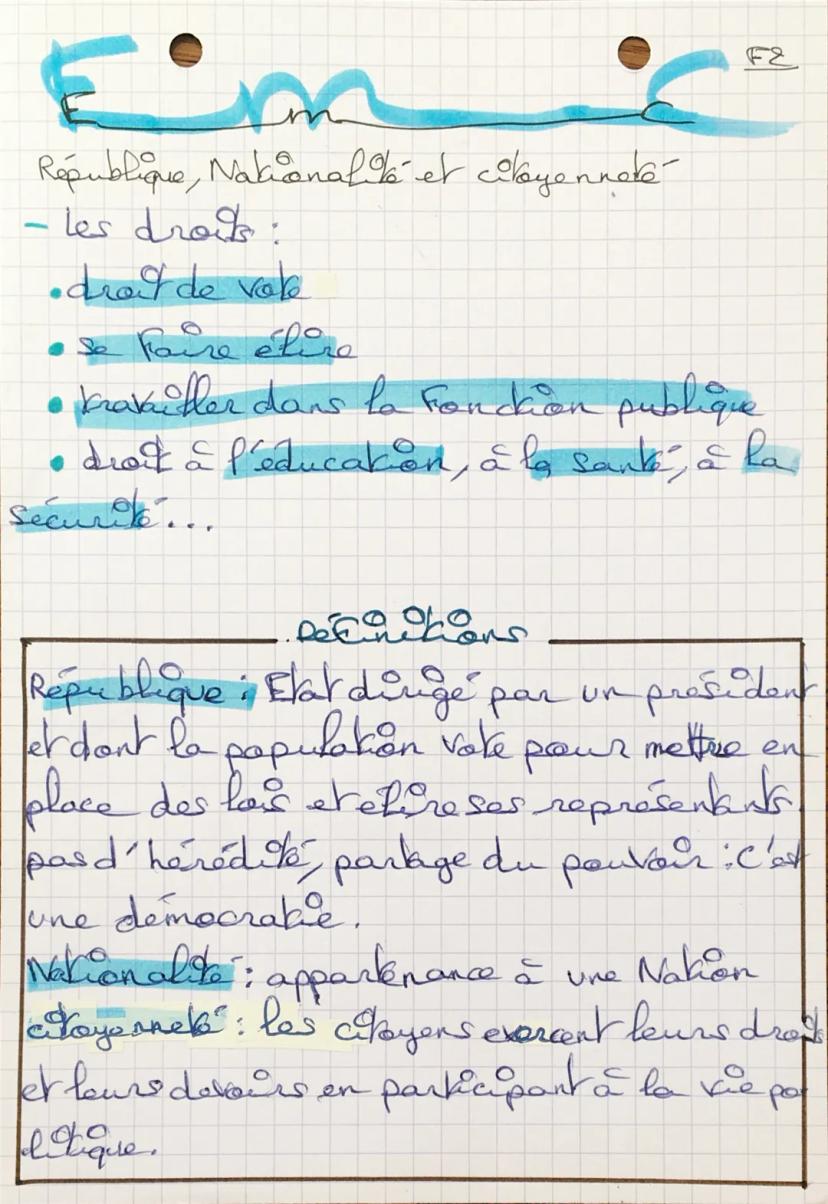 E m C
F2
République, Nationalité et citoyenneté
- les droits :
• droit de vote
• se faire élire
• travailler dans la Fonction publique
• droit à l'éducation, à la santé, à la
sécurité...
Définitions
République : Etat dirigé par un président
et dont la population vote pour mettre en
place des lois et elire ses représentants
pas d'hérédité, partage du pouvoir : c'est
une démocratie.
Nationalité : appartenance à une Nation
citoyenneté : les citoyens exercent leurs droits
et leurs devoirs en participant à la vie po
litique.